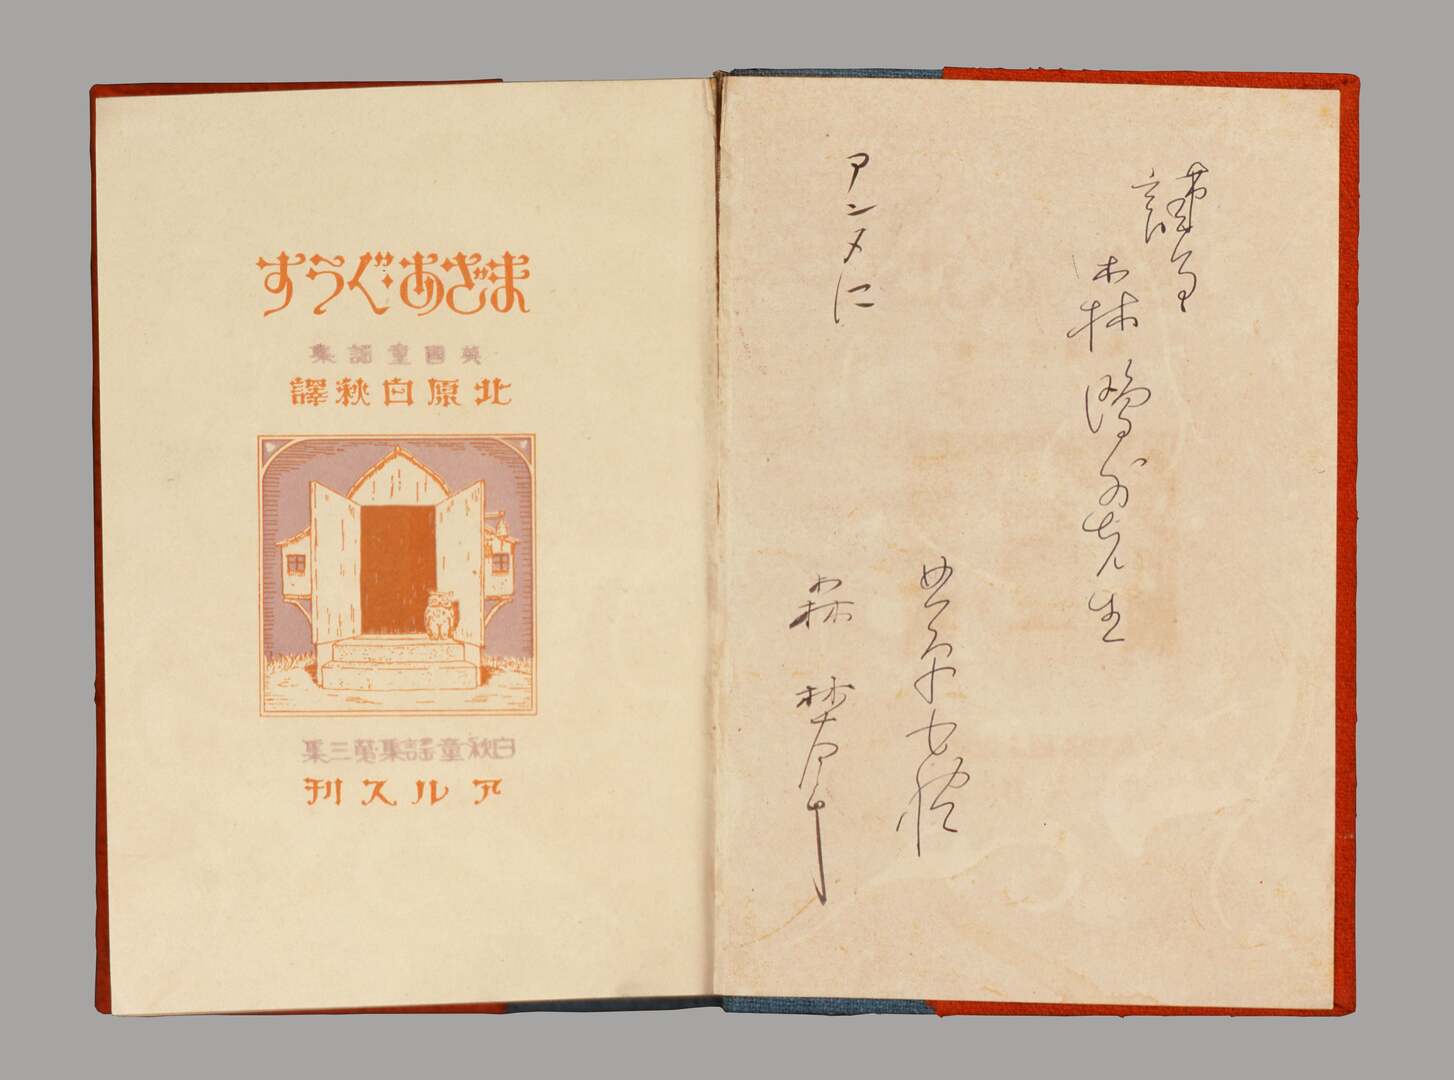 謹呈
森鴎外先生
北原白秋
アンヌに
森林太郎
まざあ・ぐうす
英國童謡集
北原白秋譯
白秋童謡集第三集
アルス刊